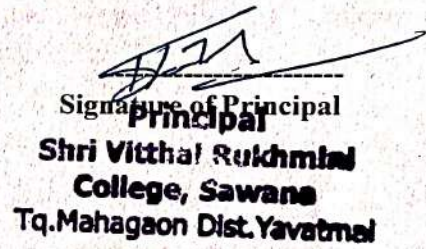 Signature of Principal
Principal
Shri Vitthal Rukhmini
College, Sawana
Tq.Mahagaon Dist.Yavatmal